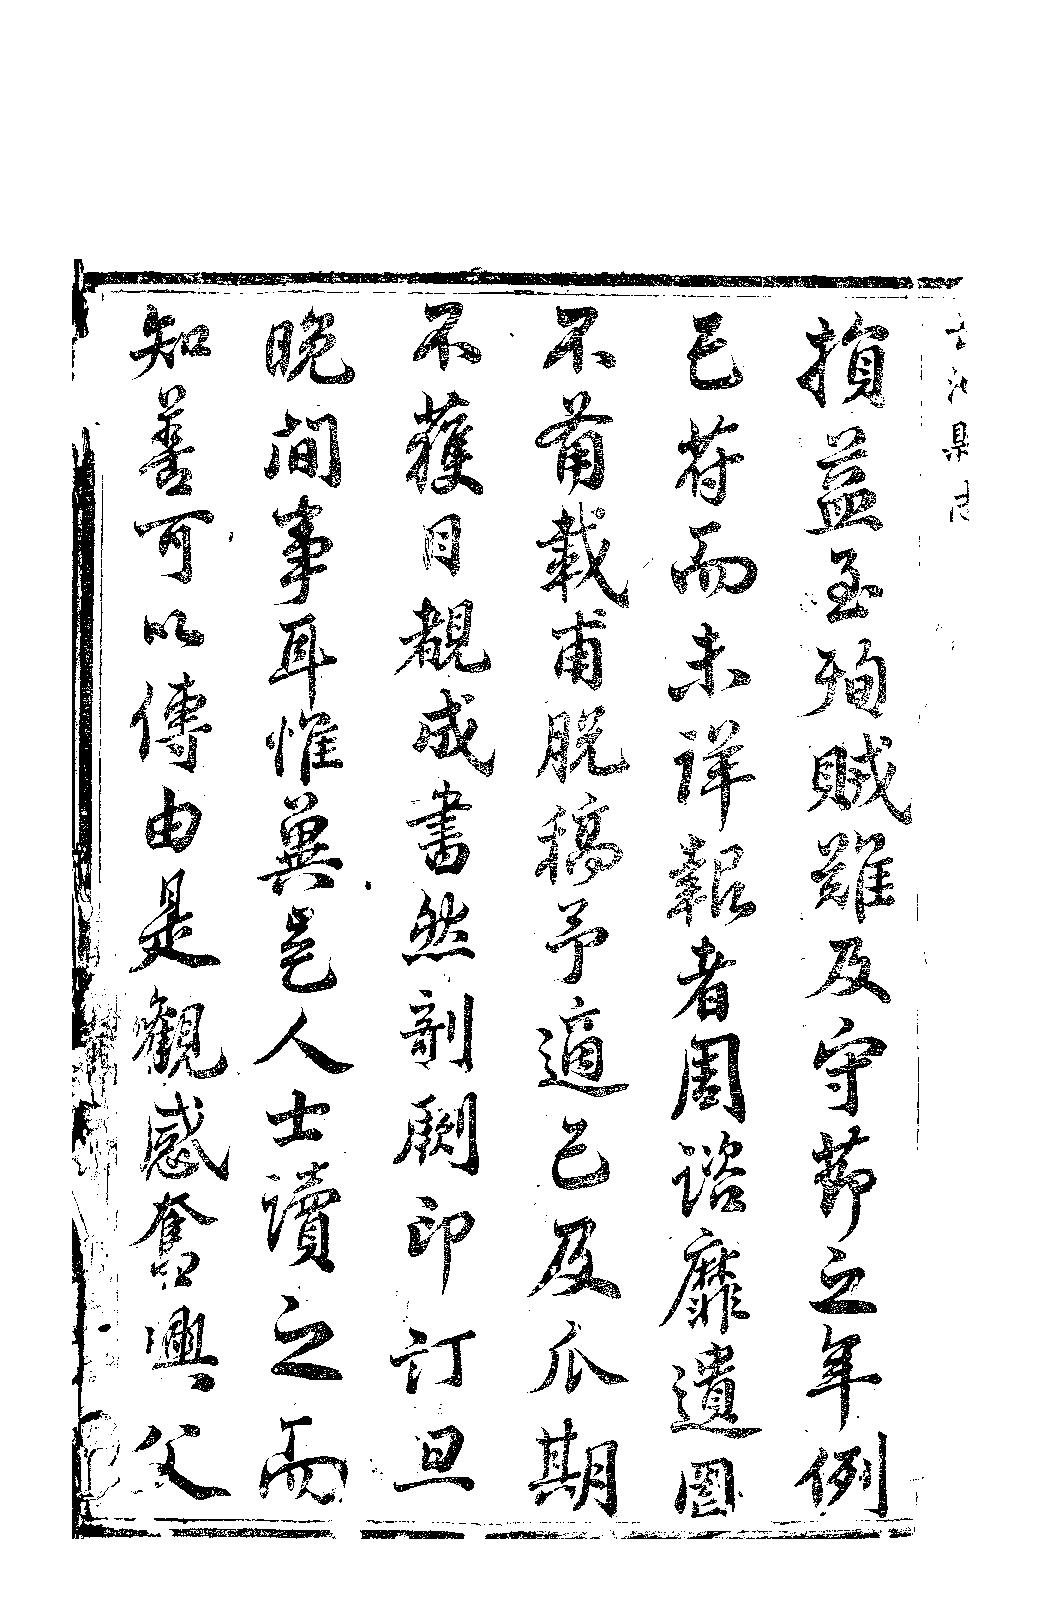 縣志
損益至殉賊難及守節之年例
已符而未詳報者周諮靡遺罔
不𤰇載甫脫稿予適已及瓜期
不獲目覩成書然剞劂印訂旦
晚間事耳惟冀邑人士讀之而
知善可以傳由是觀感奮興父